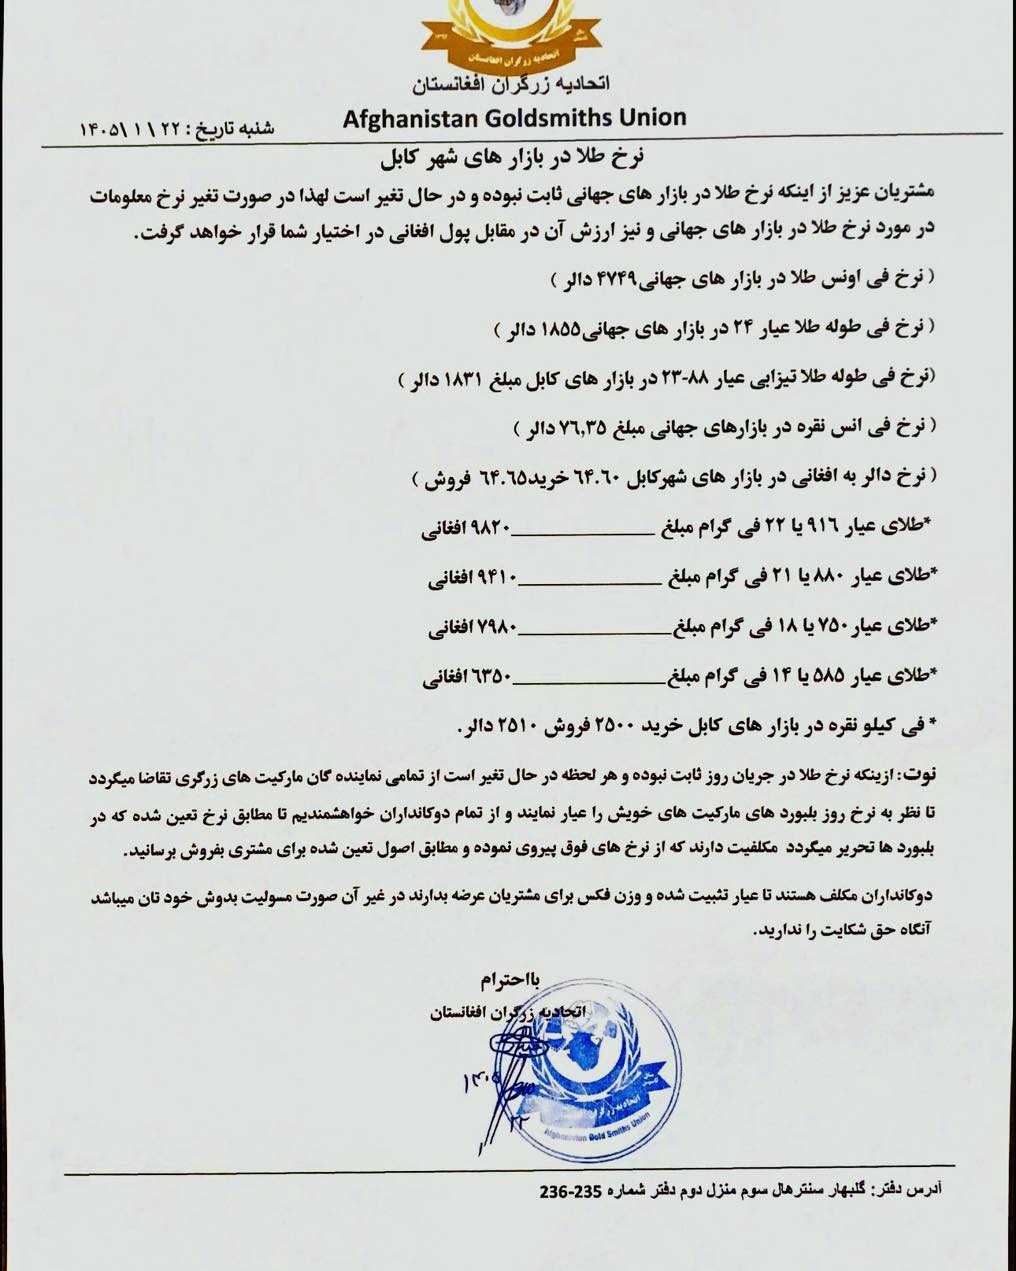 اتحادیه زرگران افغانستان
اتحادیه زرگران افغانستان
Afghanistan Goldsmiths Union
شنبه تاریخ : ۲۲ \ ۱ \ ۱۴۰۵
نرخ طلا در بازار های شهر کابل
مشتریان عزیز از اینکه نرخ طلا در بازار های جهانی ثابت نبوده و در حال تغیر است لهذا در صورت تغیر نرخ معلومات
در مورد نرخ طلا در بازار های جهانی و نیز ارزش آن در مقابل پول افغانی در اختیار شما قرار خواهد گرفت.
( نرخ فی اونس طلا در بازار های جهانی۴۷۴۹ دالر )
( نرخ فی طوله طلا عیار ۲۴ در بازار های جهانی۱۸۵۵ دالر )
(نرخ فی طوله طلا تیزابی عیار ۸۸-۲۳ در بازار های کابل مبلغ ۱۸۳۱ دالر )
( نرخ فی انس نقره در بازارهای جهانی مبلغ ۷۶,۳۵ دالر )
( نرخ دالر به افغانی در بازار های شهرکابل ۶۴.۶۰ خرید۶۴.۶۵ فروش )
*طلای عیار ۹۱۶ یا ۲۲ فی گرام مبلغ ______________۹۸۲۰ افغانی
*طلای عیار ۸۸۰ یا ۲۱ فی گرام مبلغ ______________۹۴۱۰ افغانی
*طلای عیار ۷۵۰ یا ۱۸ فی گرام مبلغ_______________۷۹۸۰ افغانی
*طلای عیار ۵۸۵ یا ۱۴ فی گرام مبلغ_______________۶۳۵۰ افغانی
* فی کیلو نقره در بازار های کابل خرید ۲۵۰۰ فروش ۲۵۱۰ دالر.
نوت: ازینکه نرخ طلا در جریان روز ثابت نبوده و هر لحظه در حال تغیر است از تمامی نماینده گان مارکیت های زرگری تقاضا میگردد
تا نظر به نرخ روز بلبورد های مارکیت های خویش را عیار نمایند و از تمام دوکانداران خواهشمندیم تا مطابق نرخ تعین شده که در
بلبورد ها تحریر میگردد مکلفیت دارند که از نرخ های فوق پیروی نموده و مطابق اصول تعین شده برای مشتری بفروش برسانید.
دوکانداران مکلف هستند تا عیار تثبیت شده و وزن فکس برای مشتریان عرضه بدارند در غیر آن صورت مسولیت بدوش خود تان میباشد
آنگاه حق شکایت را ندارید.
بااحترام
اتحادیه زرگران افغانستان
۱۴۰۵
۲۲
۱
اتحادیه زرگران
Afghanistan Gold Smiths Union
آدرس دفتر: گلبهار سنترهال سوم منزل دوم دفتر شماره 235-236